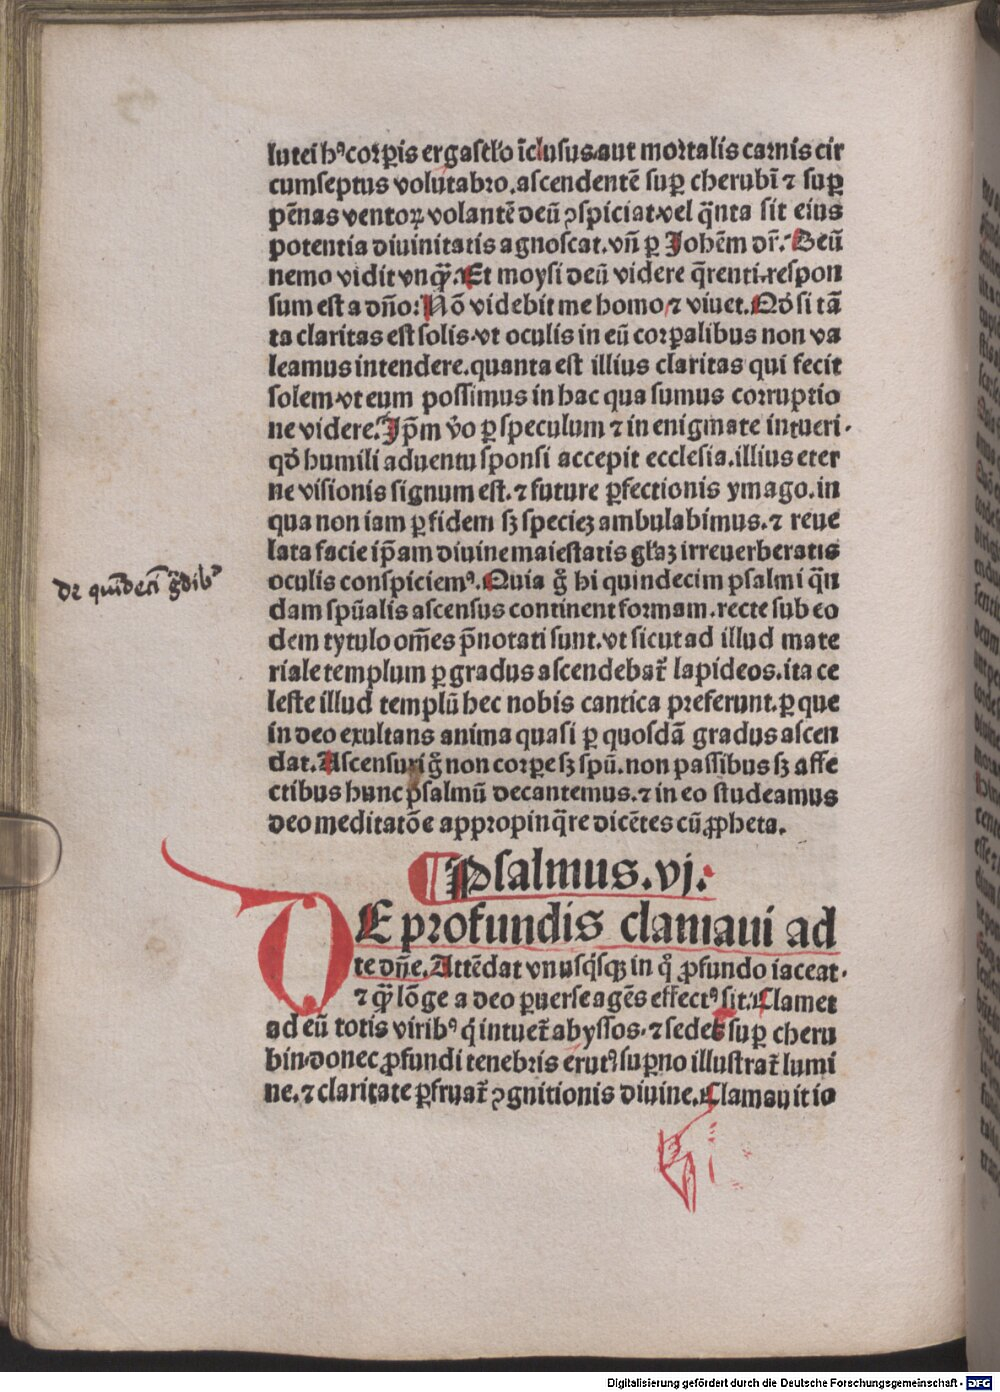 lutei hꝰ corꝑis ergastl'o īclusus.aut mortalis carnis cir
cumseptus volutabro.ascendentē suꝑ cherubī ⁊ suꝑ
pēnas ventoꝝ volantē deū ꝯspiciat.vel q̄nta sit eius
potentia diuinitatis agnoscat.vn̄ ꝑ Johēm dr̄. Deū
nemo vidit vnq̄ꝫ. Et moysi deū videre q̄renti.respon
sum est a dn̄o: Nō videbit me homo ⁊ viuet. Qđ si tā
ta claritas est solis.vt oculis in eū corꝑalibus non va
leamus intendere.quanta est illius claritas qui fecit
solem.vt eum possimus in hac qua sumus corruptio
ne videre. Ip̄m v̊o ꝑ speculum ⁊ in enigmate intueri.
qđ humili aduentu sponsi accepit ecclesia.illius eter
ne visionis signum est.⁊ future ꝑfectionis ymago.in
qua non iam ꝑ fidem sꝫ specieꝫ ambulabimus.⁊ reue
lata facie ip̄am diuine maiestatis gl'aꝫ irreuerberatis
oculis conspiciemꝰ. Quia g̊ hi quindecim psalmi q̄n
dam spūalis ascensus continent formam.recte sub eo
dem tytulo om̄es p̄notati sunt.vt sicut ad illud mate
riale templum ꝑ gradus ascendebat̄ lapideos.ita ce
leste illud templū hec nobis cantica preferunt.ꝑ que
in deo exultans anima quasi ꝑ quosdā gradus ascen
dat. Ascensuri g̊ non corꝑe sꝫ spū.non passibus sꝫ affe
ctibus hunc psalmū decantemus.⁊ in eo studeamus
deo meditatōe appropinq̄re dicētes cū ꝓpheta.
de quīdecī g̊dibꝰ
Psalmus.vj.
DE profundis clamaui ad
te dn̄e. Attēdat vnusq̇sqꝫ in q̊ ꝓfundo iaceat.
⁊ q̄ꝫ lōge a deo ꝑuerse agēs effectꝰ sit. Clamet
ad eū totis viribꝰ q̇ intuet̄ abyssos.⁊ sedet suꝑ cheru
bin.donec ꝓfundi tenebris erutꝰ suꝑno illustrat̄ lumi
ne.⁊ claritate ꝑfruat̄ ꝯgnitionis diuine. Clamauit io
Digitalisierung gefördert durch die Deutsche Forschungsgemeinschaft - DFG